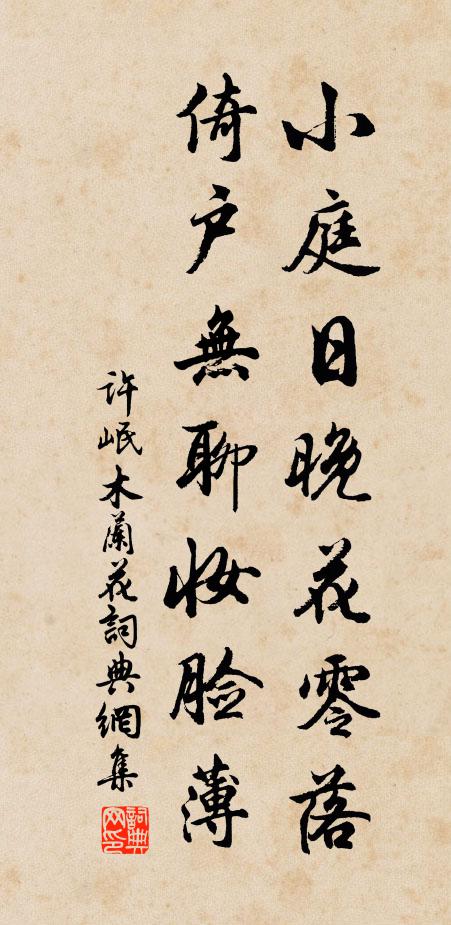 小庭日晚花零落
倚户無聊妝脸薄
許岷木蘭花詞典網集
詞典网印